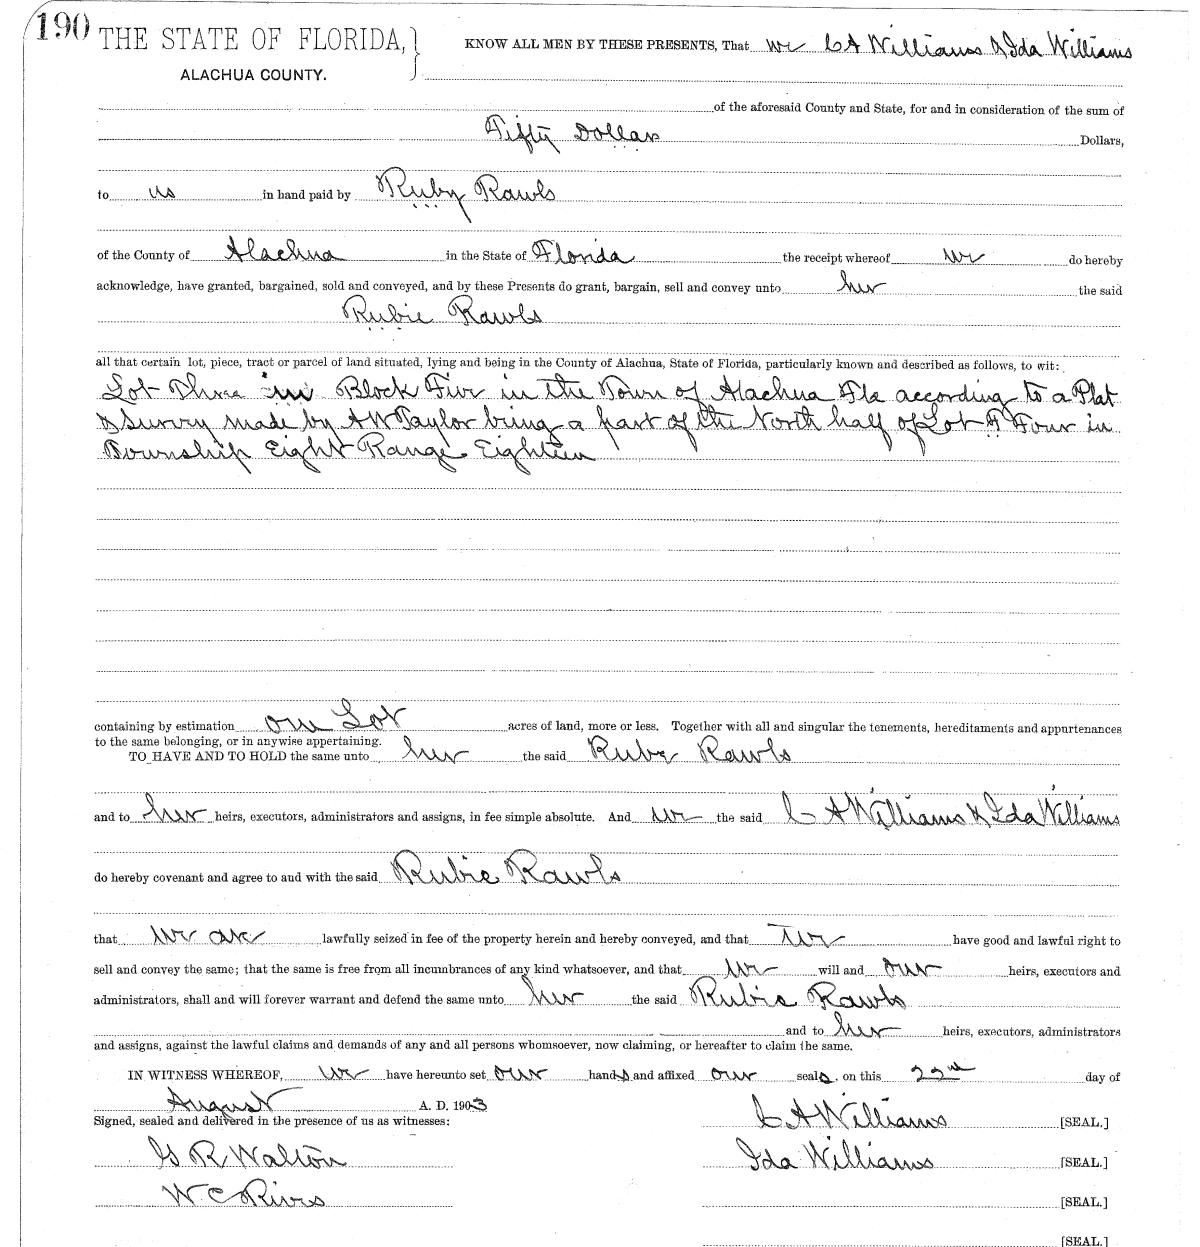 190 THE STATE OF FLORIDA, } KNOW ALL MEN BY THESE PRESENTS, That we C A Williams & Ida Williams
ALACHUA COUNTY.
of the aforesaid County and State, for and in consideration of the sum of
Fifty Dollars Dollars,
to us in hand paid by Ruby Rawls
of the County of Alachua in the State of Florida the receipt whereof we do hereby
acknowledge, have granted, bargained, sold and conveyed, and by these Presents do grant, bargain, sell and convey unto her the said
Rubie Rawls
all that certain lot, piece, tract or parcel of land situated, lying and being in the County of Alachua, State of Florida, particularly known and described as follows, to wit:
Lot Three in Block Five in the Town of Alachua Fla according to a Plat
& Survey made by A W Taylor being a part of the North half of Lot Four in
Township Eight Range Eighteen
containing by estimation one Lot acres of land, more or less. Together with all and singular the tenements, hereditaments and appurtenances
to the same belonging, or in anywise appertaining.
TO HAVE AND TO HOLD the same unto her the said Ruby Rawls
and to her heirs, executors, administrators and assigns, in fee simple absolute. And we the said C A Williams & Ida Williams
do hereby covenant and agree to and with the said Rubie Rawls
that we are lawfully seized in fee of the property herein and hereby conveyed, and that we have good and lawful right to
sell and convey the same; that the same is free from all incumbrances of any kind whatsoever, and that we will and our heirs, executors and
administrators, shall and will forever warrant and defend the same unto her the said Rubie Rawls
and to her heirs, executors, administrators
and assigns, against the lawful claims and demands of any and all persons whomsoever, now claiming, or hereafter to claim the same.
IN WITNESS WHEREOF, we have hereunto set our hands and affixed our seals, on this 22nd day of
August A. D. 1903
Signed, sealed and delivered in the presence of us as witnesses: C A Williams [SEAL.]
G R Walton Ida Williams [SEAL.]
W C Rives [SEAL.]
[SEAL.]